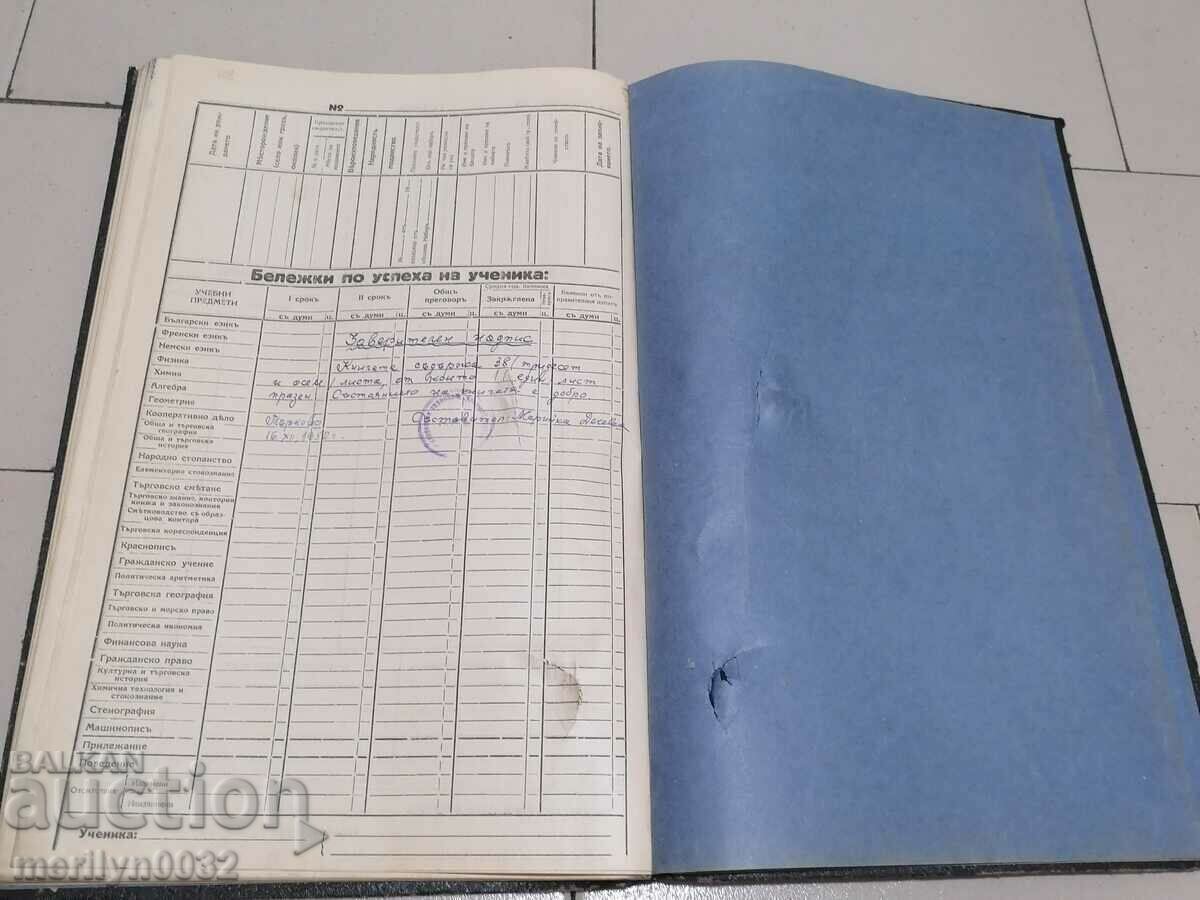 №
Дата на запи-
сването
Мѣсторождение
(село или градъ,
околия)
Вѣроизповедание
Народность
поданство
Бележки по успеха на ученика:
УЧЕБНИ
ПРЕДМЕТИ
I срокъ
II срокъ
Общъ
преговоръ
Закрѫглена
съ думи ц.
съ думи ц.
съ думи ц.
съ думи ц.
съ думи ц.
Български езикъ
Френски езикъ
Немски езикъ
Физика
Химия
Алгебра
Геометрия
Кооперативно дѣло
Обща и търговска
география
Обща и търговска
история
Народно стопанство
Елементарно стокознание
Търговско смѣтане
Търговско знание, конторни
книжа и законознание
Смѣтководство съ образ-
цова контора
Търговска кореспонденция
Краснописъ
Гражданско учение
Политическа аритметика
Търговска география
Търговско и морско право
Политическа икономия
Финансова наука
Гражданско право
Културна и търговска
история
Химична технология и
стокознание
Стенография
Машинописъ
Прилежание
Поведение
Отсѫтствия
Извинени
Неизвинени
Ученика:
Заверителен надпис
Книгата съдържа 38/тридесет
и осем/ листа, от които 1/един/ лист
празен. Състоянието на книгата е добро.
Съставител: Марийка
16.XII.
BALKAN
auction
merilyn0032